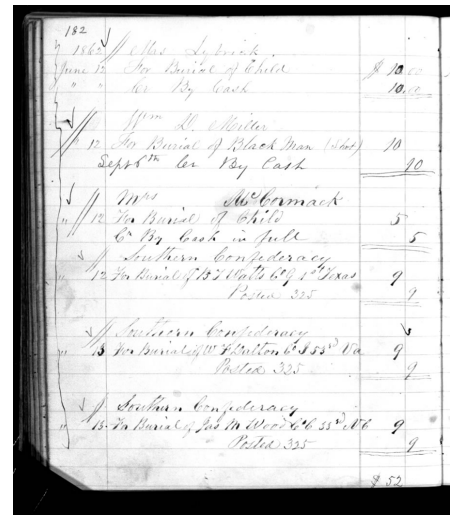 182
1862 // Mrs Lybrick
June 12 For Burial of Child $ 10 00
" " Cr By Cash 10 00
// Wm D. Miller
" 12 For Burial of Black Man (Slave) 10
Sept 6th Cr By Cash 10
// Mrs McCormack
" 12 For Burial of Child 5
Cr By Cash in full 5
// Southern Confederacy
" 12 For Burial of Watts Co 1st Texas 9
Posted 325 9
// Southern Confederacy
" 13 For Burial of W F Dalton Co I 53rd Va 9
Posted 325 9
// Southern Confederacy
" 13 For Burial of Jas M Wood Co 6 33rd NC 9
Posted 325 9
$ 52